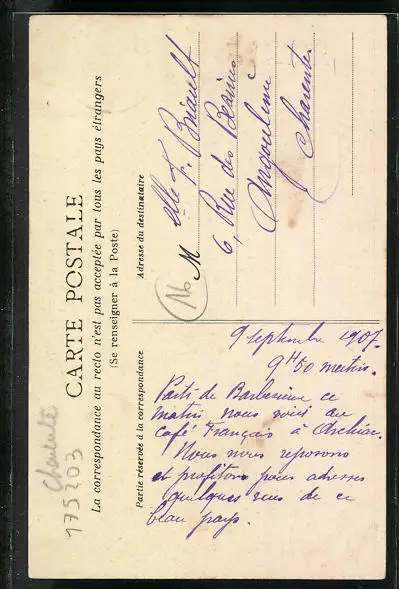 CARTE POSTALE
La correspondance au recto n'est pas acceptée par tous les pays étrangers
(Se renseigner à la Poste)
Partie réservée à la correspondance
9 septembre 1907.
9H50 matin.
Partis de Barbezieux ce
matin nous voici au
café Français à
Nous nous reposons
et profitons pour adresser
quelques vues de ce
beau pays.
Adresse du destinataire
M elle F. Briault
6, Rue des
Angoulême
Charente
16
Charente
175203